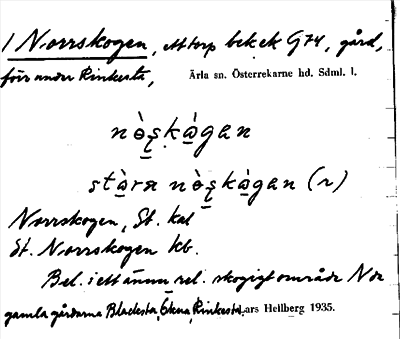 1 Norrskogen, ett torp bek ek G74, gård,
förr under Rinkesta, Ärla sn. Österrekarne hd. Sdml. l.
Norrskogen, St. kal
St. Norrskogen kb.
Bel. i ett ännu rel. skogigt område N de
gamla gårdarna Blacksta, Ökna, Rinkesta. Lars Hellberg 1935.